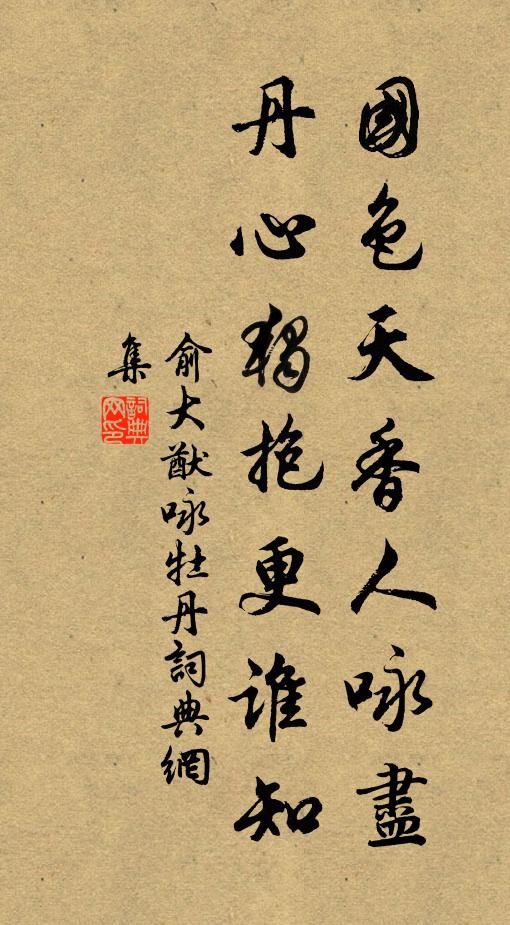 國色天香人咏盡
丹心獨抱更誰知
俞大猷咏牡丹詞典網
集
詞典
网印